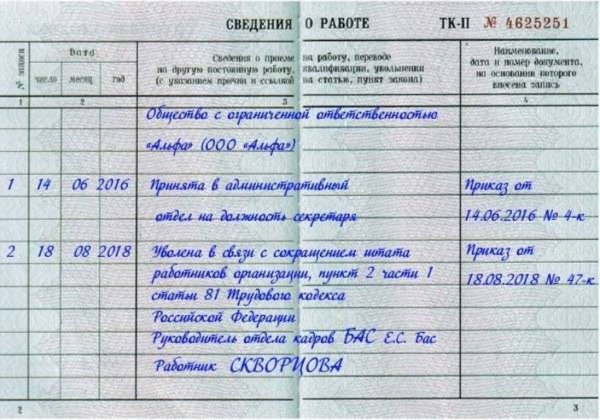 СВЕДЕНИЯ О РАБОТЕ ТК-II № 4625251
№ записи
Дата
число месяц год
Сведения о приеме на работу, переводе
на другую постоянную работу, квалификации, увольнении
(с указанием причин и ссылкой на статью, пункт закона)
Наименование,
дата и номер документа,
на основании которого
внесена запись
1 2 3 4
Общество с ограниченной ответственностью
«Альфа» (ООО «Альфа»)
1 14 06 2016 Принята в административный Приказ от
отдел на должность секретаря 14.06.2016 № 4-к
2 18 08 2018 Уволена в связи с сокращением штата Приказ от
работников организации, пункт 2 части 1 18.08.2018 № 47-к
статьи 81 Трудового кодекса
Российской Федерации
Руководитель отдела кадров БАС Е.С. Бас
Работник СКВОРЦОВА
2 3